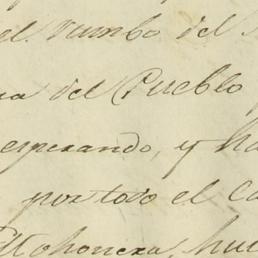 el rumbo del
del Pueblo
esperando, y ha
por todo el Ca
Mohonera, hu